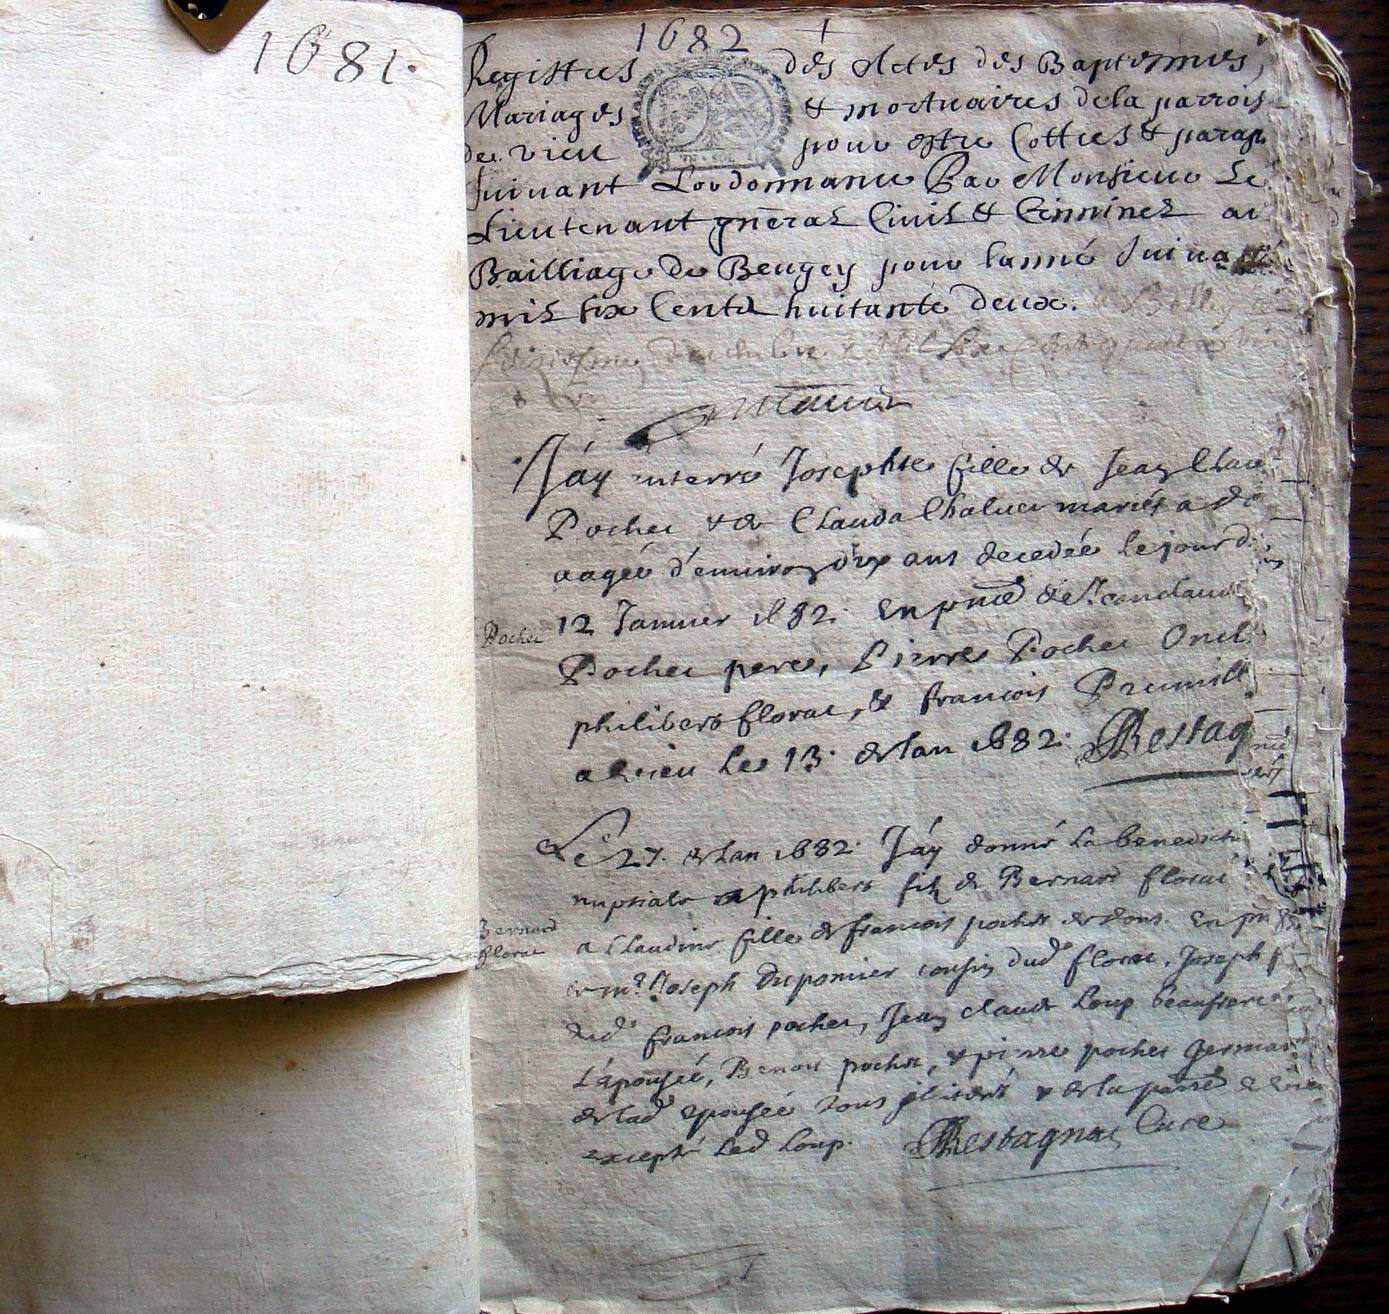 1681.
1682
Registres des Actes des Baptesmes,
Mariages & mortuaires dela parrois
de vieu pour estre Cottes & parap
UN · SOL
suivant Lordonnance Par Monsieur Le
Lieutenant gñeral Civil & Criminel au
Bailliage de Beugey pour lanné suiva
mil six Cents huitante deux.
Jáy enterré Josephte fille de Jean Clau
Pochet & de Clauda Chaluet mariés a
aagée d'environ dix ans decedée le jour d
12 Januier 1682. En pñce de Jean claude
Pochet pere, Pierre Pochet Oncl
Pochet
philibert florat, & francois Prunill
a vieu le 13. de Jan 1682. Restag
Le 27. de Jan 1682. Jáy donné la benedicti
nuptiale a philibert filz de Bernard florat
Bernard
florat
a Claudine fille de francois pochet de dons. En pñ
de mr. Joseph Duponier cousin dud. florat, Joseph p
dud. francois pochet, Jean claude Loup beaufrere
L'épousée, Benoit pochet, & pierre pochet germa
de lad. epousée tous & de la parr de vieu
excepté led Loup. Restagnat Curé